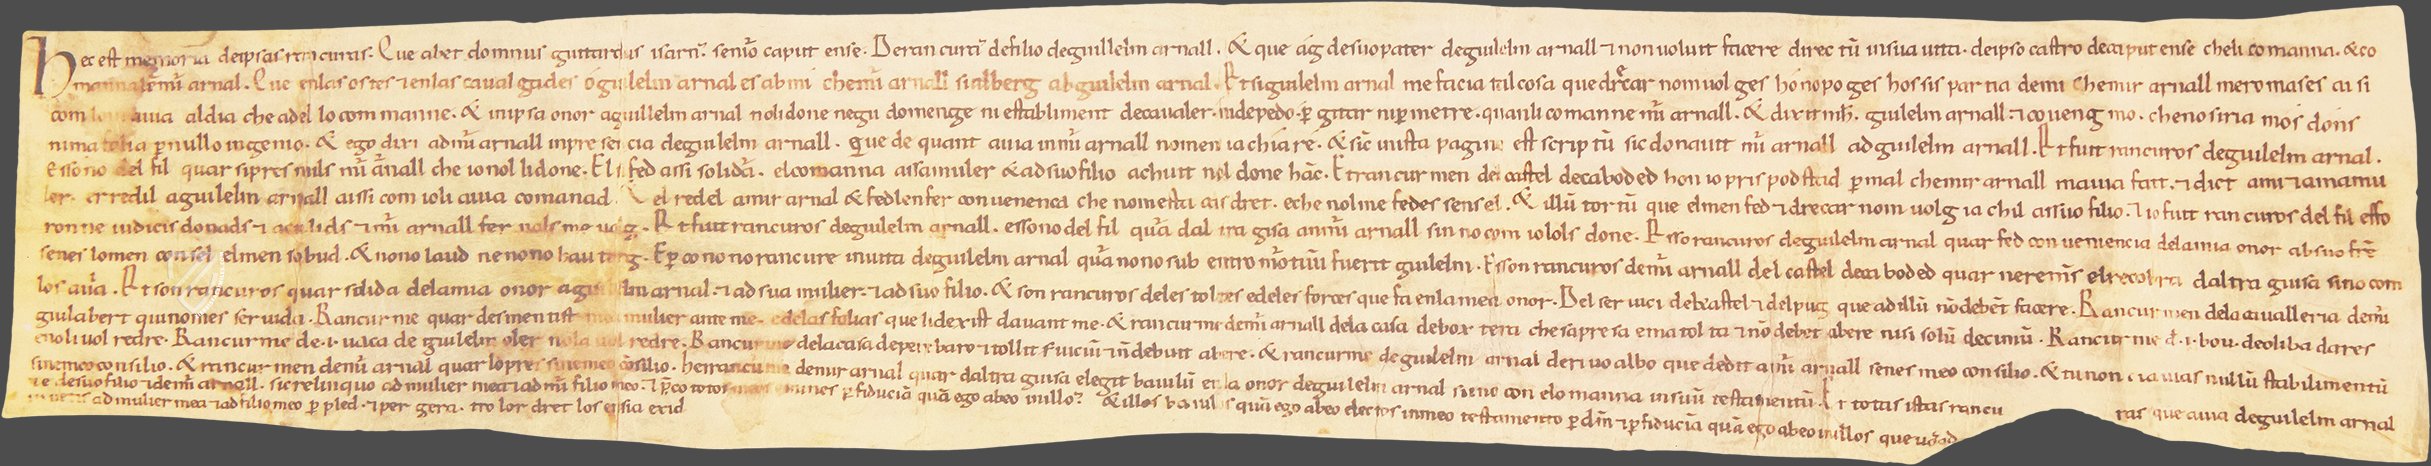 Hec est memoria de ipsas rancuras. Que abet domnus guitardus isarn̄. senior caput ense. De rancura de filio de guillelm arnall. & que ag de suo pater de guilelm arnall & non voluit facere directū in sua vita. de ipso castro de caput ense che li comanna. & co
manna lē mir arnal. Que en las ostes & en las cavalgades o guilelm arnal es ab mi che mir arnall si alberg ab guilelm arnal. Et si guilelm arnal me facia tal cosa que dreçar nom volges ho no poges hos sis partia de mi che mir arnall me romases aisi
com lo avia al dia che ad el lo commanne. & in ipsa onor a guillelm arnal no li done negu domenge ni establiment de cavaler. ni de pedo. per gitar ni per metre. quan li comanne mir arnall. & dixit mihi guilelm arnall. & coveng mo. che no siria mos dons
ni ma folia per nullo ingenio. & ego dixi ad mir arnall in presencia de guilelm arnall. Que de quant avia in mir arnall no men iachiare. & sic in ista pagina est scriptū sic donavit mir arnall ad guilelm arnall. Et fuit rancuros de guilelm arnal.
Esso no del fil quar si pres muls mir arnall che io nol li done. El fed assi solidar. el comanna assa muler & ad suo filio achuit nol done hanc. Et rancur men del castel de caboded hon io pris podstad per mal che mir arnall mavia fait. & dict a mi & a ma mu
ler. e redil a guilelm arnall aissi com io li avia comanad. & el redel a mir arnal & fed len fer convenencia che nom esta ais dret. e che nol me fedes sens el. & illū tortū que el men fed & dreçar nom volg ia chil assuo filio. & io fuit rancuros del fil esso
ron ne iudicis donads & acolids & mir arnall fer nols me volg. Et fuit rancuros de guilelm arnall. esso no del fil quar daltra gisa a mir arnall si no com io lols done. Esso rancuros de guilelm arnal quar fed conveniencia de la mia onor ab suo frē
senes lo men consel. el men sobud. & no no laud ne no no hautorg. E per ço no no rancure in vita de guilelm arnal quar no no sub entro mortuū fuerit guilelm. E sson rancuros de mir arnall del castel de caboded quar ne remis el recobra daltra guisa si no com
los avia. Et son rancuros quar solida de la mia onor a guilelm arnal. & ad sua mulier. & ad suo filio. & son rancuros de les toltes e de les forces que fa en la mea onor. Del servici de bxastel & del pug que ad illū non debent facere. Rancur men de la cavalleria de mir
guilabert qui nomes servida. Rancur me quar desmentist ma mulier ante me. e de las folias que li dexist davant me. & rancur me de mir arnall de la casa de boxtera che sa presa e ma tolta & no debet abere nisi solū decimū. Rancur me d. i. bou. de oliba dares
e no li vol redre. Rancur me de. i. vaca de guilelm oler no la vol redre. Rancur me de la casa de pere baro & tollit servicium & n debuit abere. & rancur me de guilelm arnal de rivo albo que dedit a mir arnall senes meo consilio. & tu non i avias nullū stabilimentū
sine meo consilio. & rancur men de mir arnal quar lo pres sine meo consilio. hei rancur me de mir arnal quar daltra guisa elegit baiulū en la onor de guilelm arnal si no con elo manna in suū testamentū. Et totas istas rancuras que avia de guilelm arnal
e de suo filio & de mir arnall. sic relinquo ad mulier mea & ad mir filio meo. & per ço totos meos omines per fiducia quam ego abeo in illos. & illos baiulos quam ego abeo electos in meo testamento per dm & per fiducia quam ego abeo in illos que
ad mulier mea & ad filio meo per pled. & per gera. tro lor dret los en sia exid